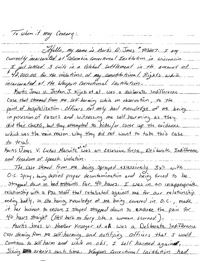 To whom it may Concern:
"Hello, my name is Martis D. Jones I am currently incarcerated at Columbia Correctional Institution in Wisconsin. I just settled 3 suits in a Global Settlement in the amount of for the violations of my constitutional rights while incarcerated at the Waupun Correctional Institution.
Martis Jones v. was a Deliberate Indifference Case that stemmed from me self harming while on observation, to the point of hospitalization. Officers not only had knowledge of me being in possession of razors and witnessing me self harming, as they did this count, but they attempted to evidence which was the main reason why they did not want to take this case to trial.
Martis Jones v. was an excessive force, Deliberate Indifference, and Freedom of Speech violation.
The case stems from me being sprayed excessively 3x's with O.C. Spray, being denied proper decontamination and being forced to be Strapped down on bed restraints for 40 hours. I was in an inappropriate relationship with a staff that retaliated against me for our relationship ending badly; so she having knowledge of me being covered in O.C., made it her business to ensure I stayed strapped down to endure the pain for 40 hours straight
Martis Jones v. et al was a Deliberate Indifference case stemming from me self harming, and notifying officers that I would Continue to self harm and while on obs. I self harmed again, Waupun Correctional Institution had